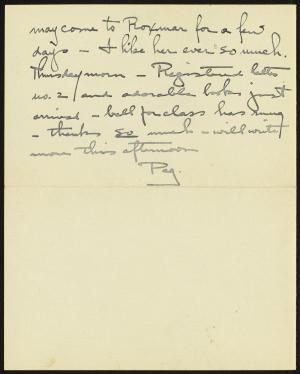 may come to Roxmar for a few
days – I like her ever so much.
Thursday morn – Registered letter
no. 2 and adorable books just
arrived – bell for class has rung
– thanks so much – will write
more this afternoon
Peg.